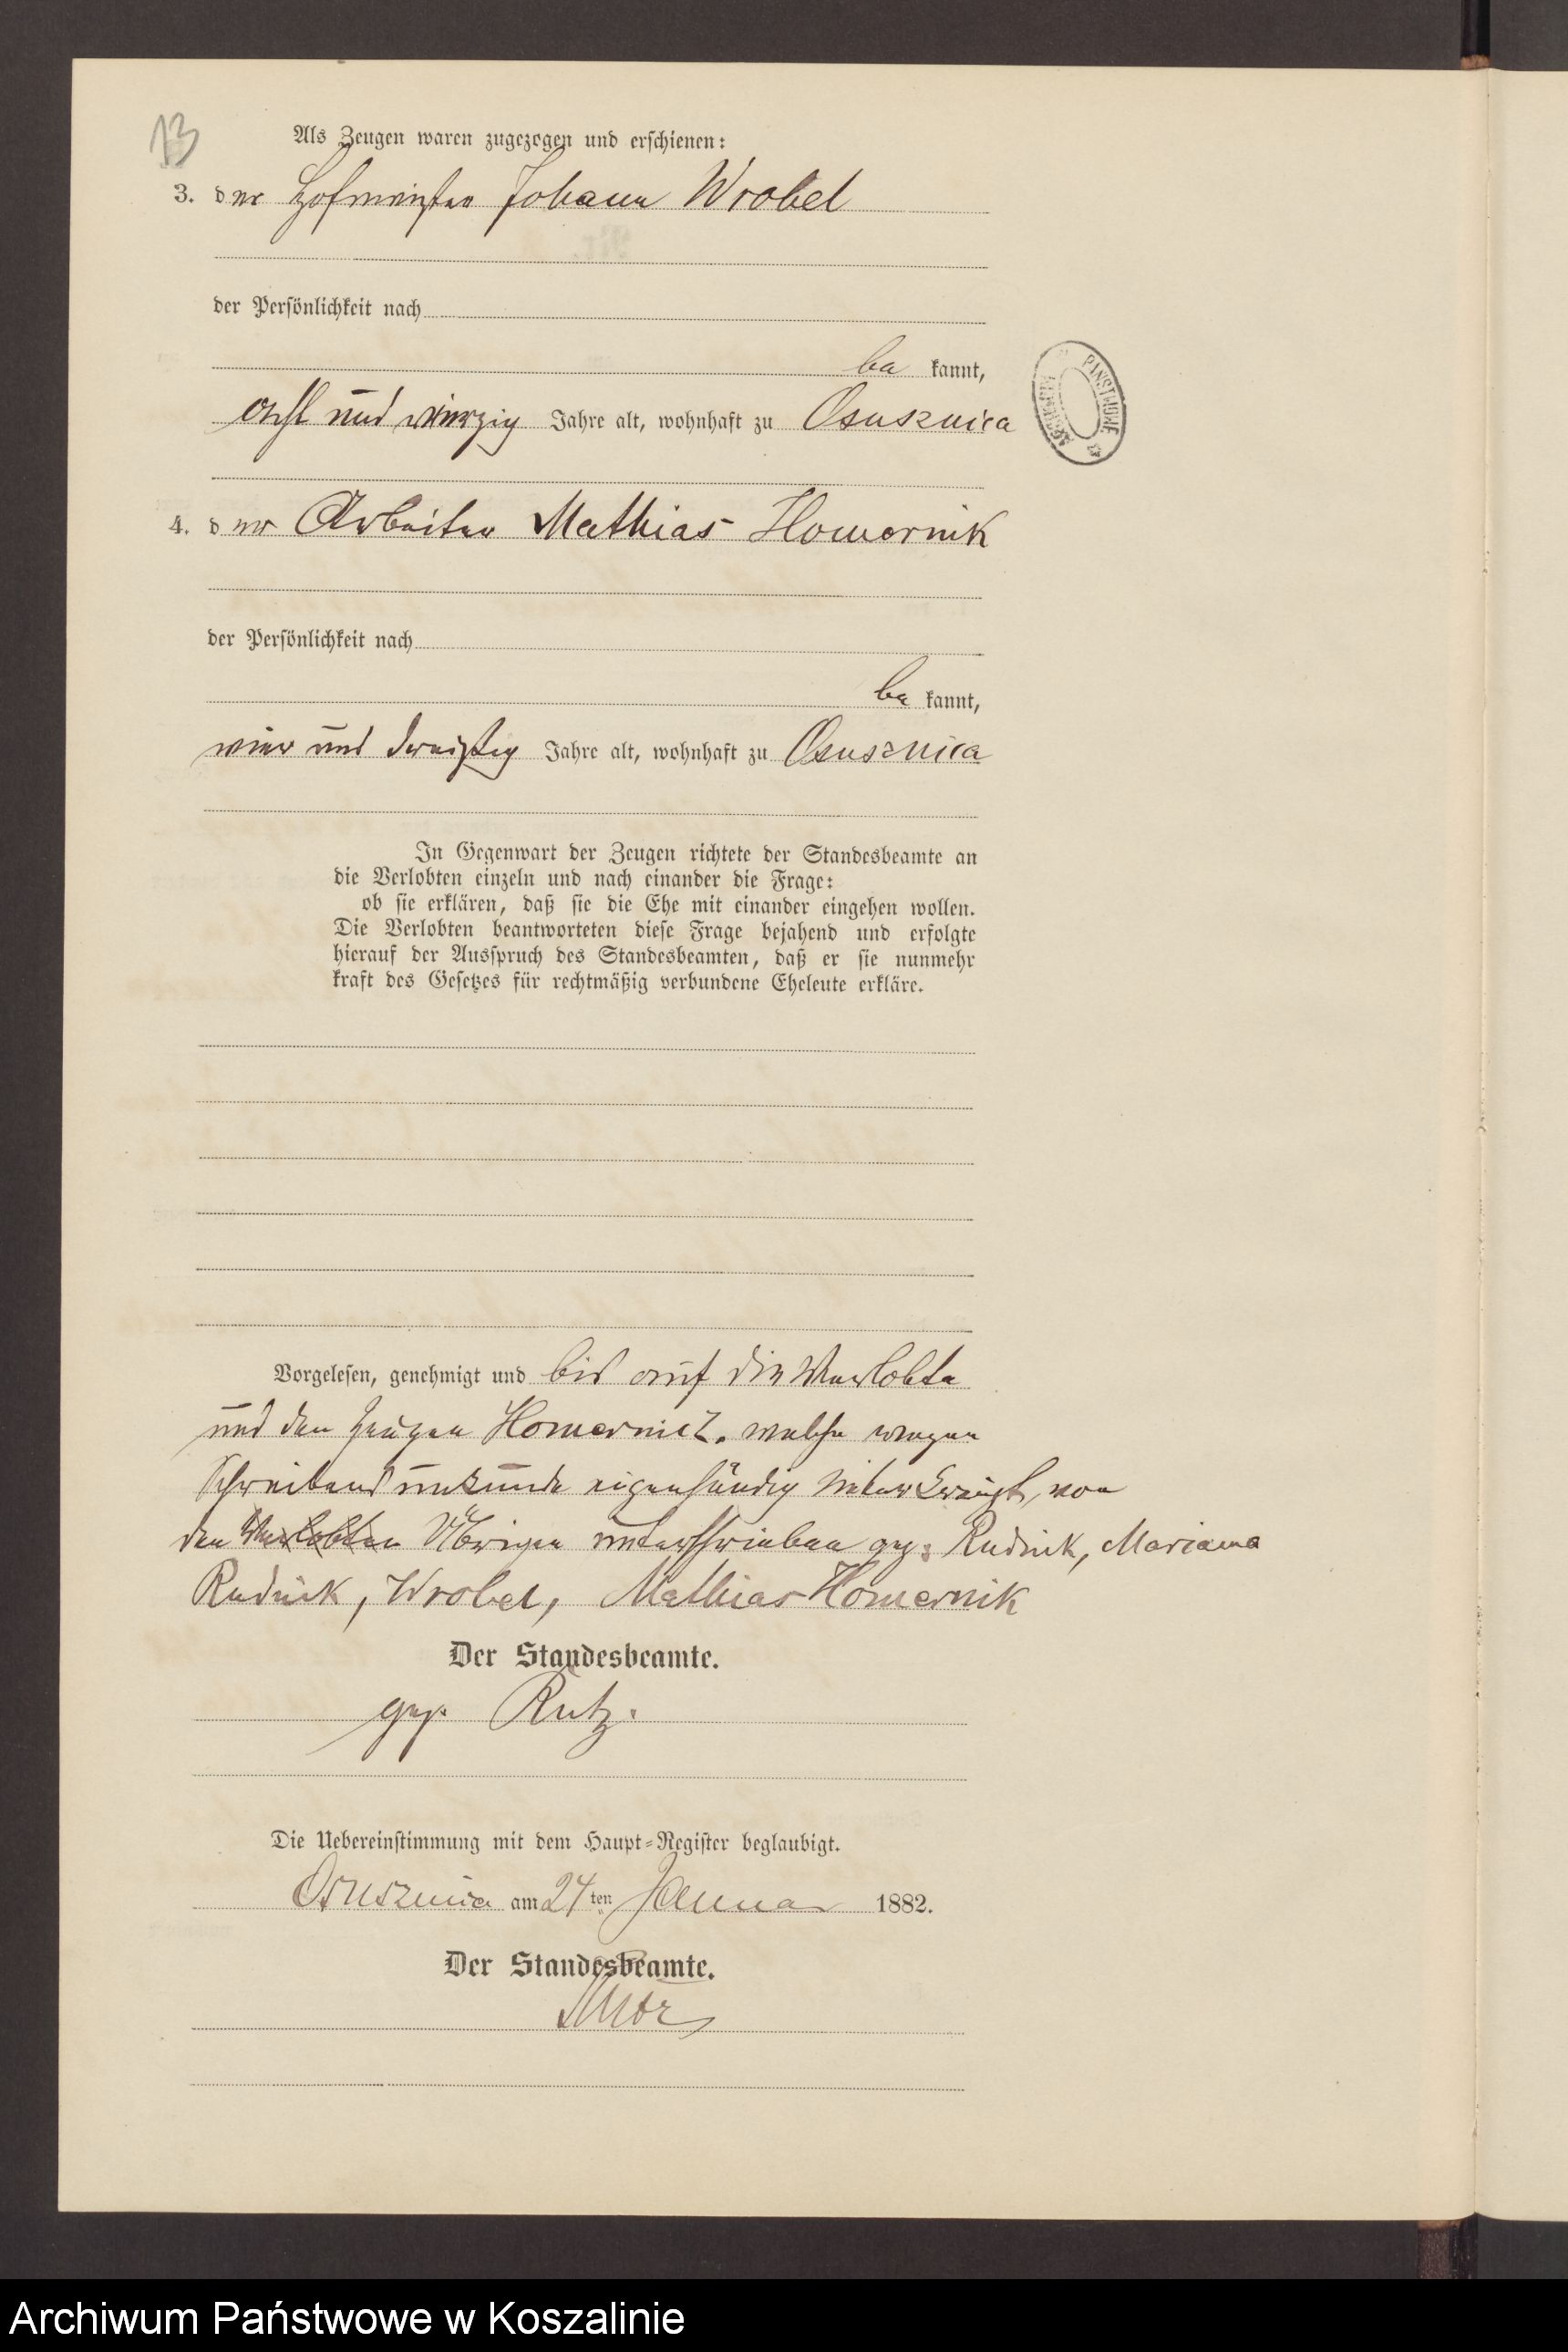 13
Als Zeugen waren zugezogen und erschienen:
3. der Hofmeister Johann Wrobel
der Persönlichkeit nach
be kannt,
acht und vierzig Jahre alt, wohnhaft zu Osusznica
4. der Arbeiter Mathias Homernik
der Persönlichkeit nach
be kannt,
vier und dreißig Jahre alt, wohnhaft zu Osusznica
In Gegenwart der Zeugen richtete der Standesbeamte an
die Verlobten einzeln und nach einander die Frage:
ob sie erklären, daß sie die Ehe mit einander eingehen wollen.
Die Verlobten beantworteten diese Frage bejahend und erfolgte
hierauf der Ausspruch des Standesbeamten, daß er sie nunmehr
kraft des Gesetzes für rechtmäßig verbundene Eheleute erkläre.
Vorgelesen, genehmigt und bis auf die Verlobte
und den Zeugen Homernick. welche wegen
Schreibens unkunde eigenhändig unterkreuzt, von
den Verlobten Übrigen unterschrieben gez: Rudnik, Marianna
Rudnik, Wrobel, Mathias Homernik
Der Standesbeamte.
gez. Rutz.
Die Uebereinstimmung mit dem Haupt-Register beglaubigt.
Osusznica am 24ten Januar 1882.
Der Standesbeamte.
ARCHIWUM PAŃSTWOWE
Archiwum Państwowe w Koszalinie